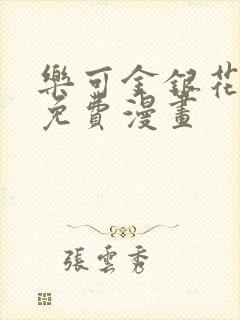 樂可金銀花
免費漫畫
張雲秀